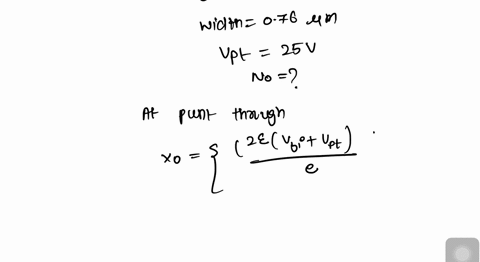 width = 0.76 μm
Vpt = 25V
No = ?
At punt through
xo = { (2ε(Vbi + Vpt)
e